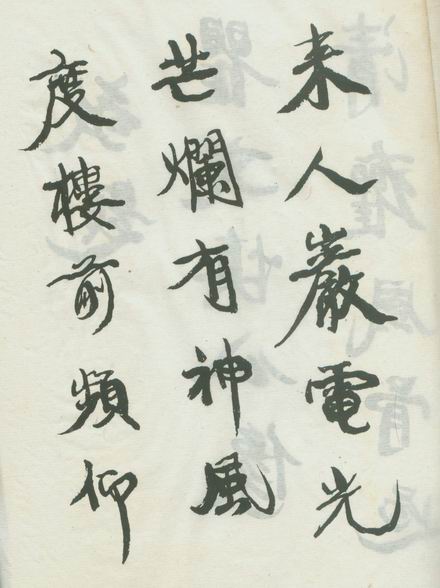 来人巖電光
芒爛有神風
度樓前頻仰